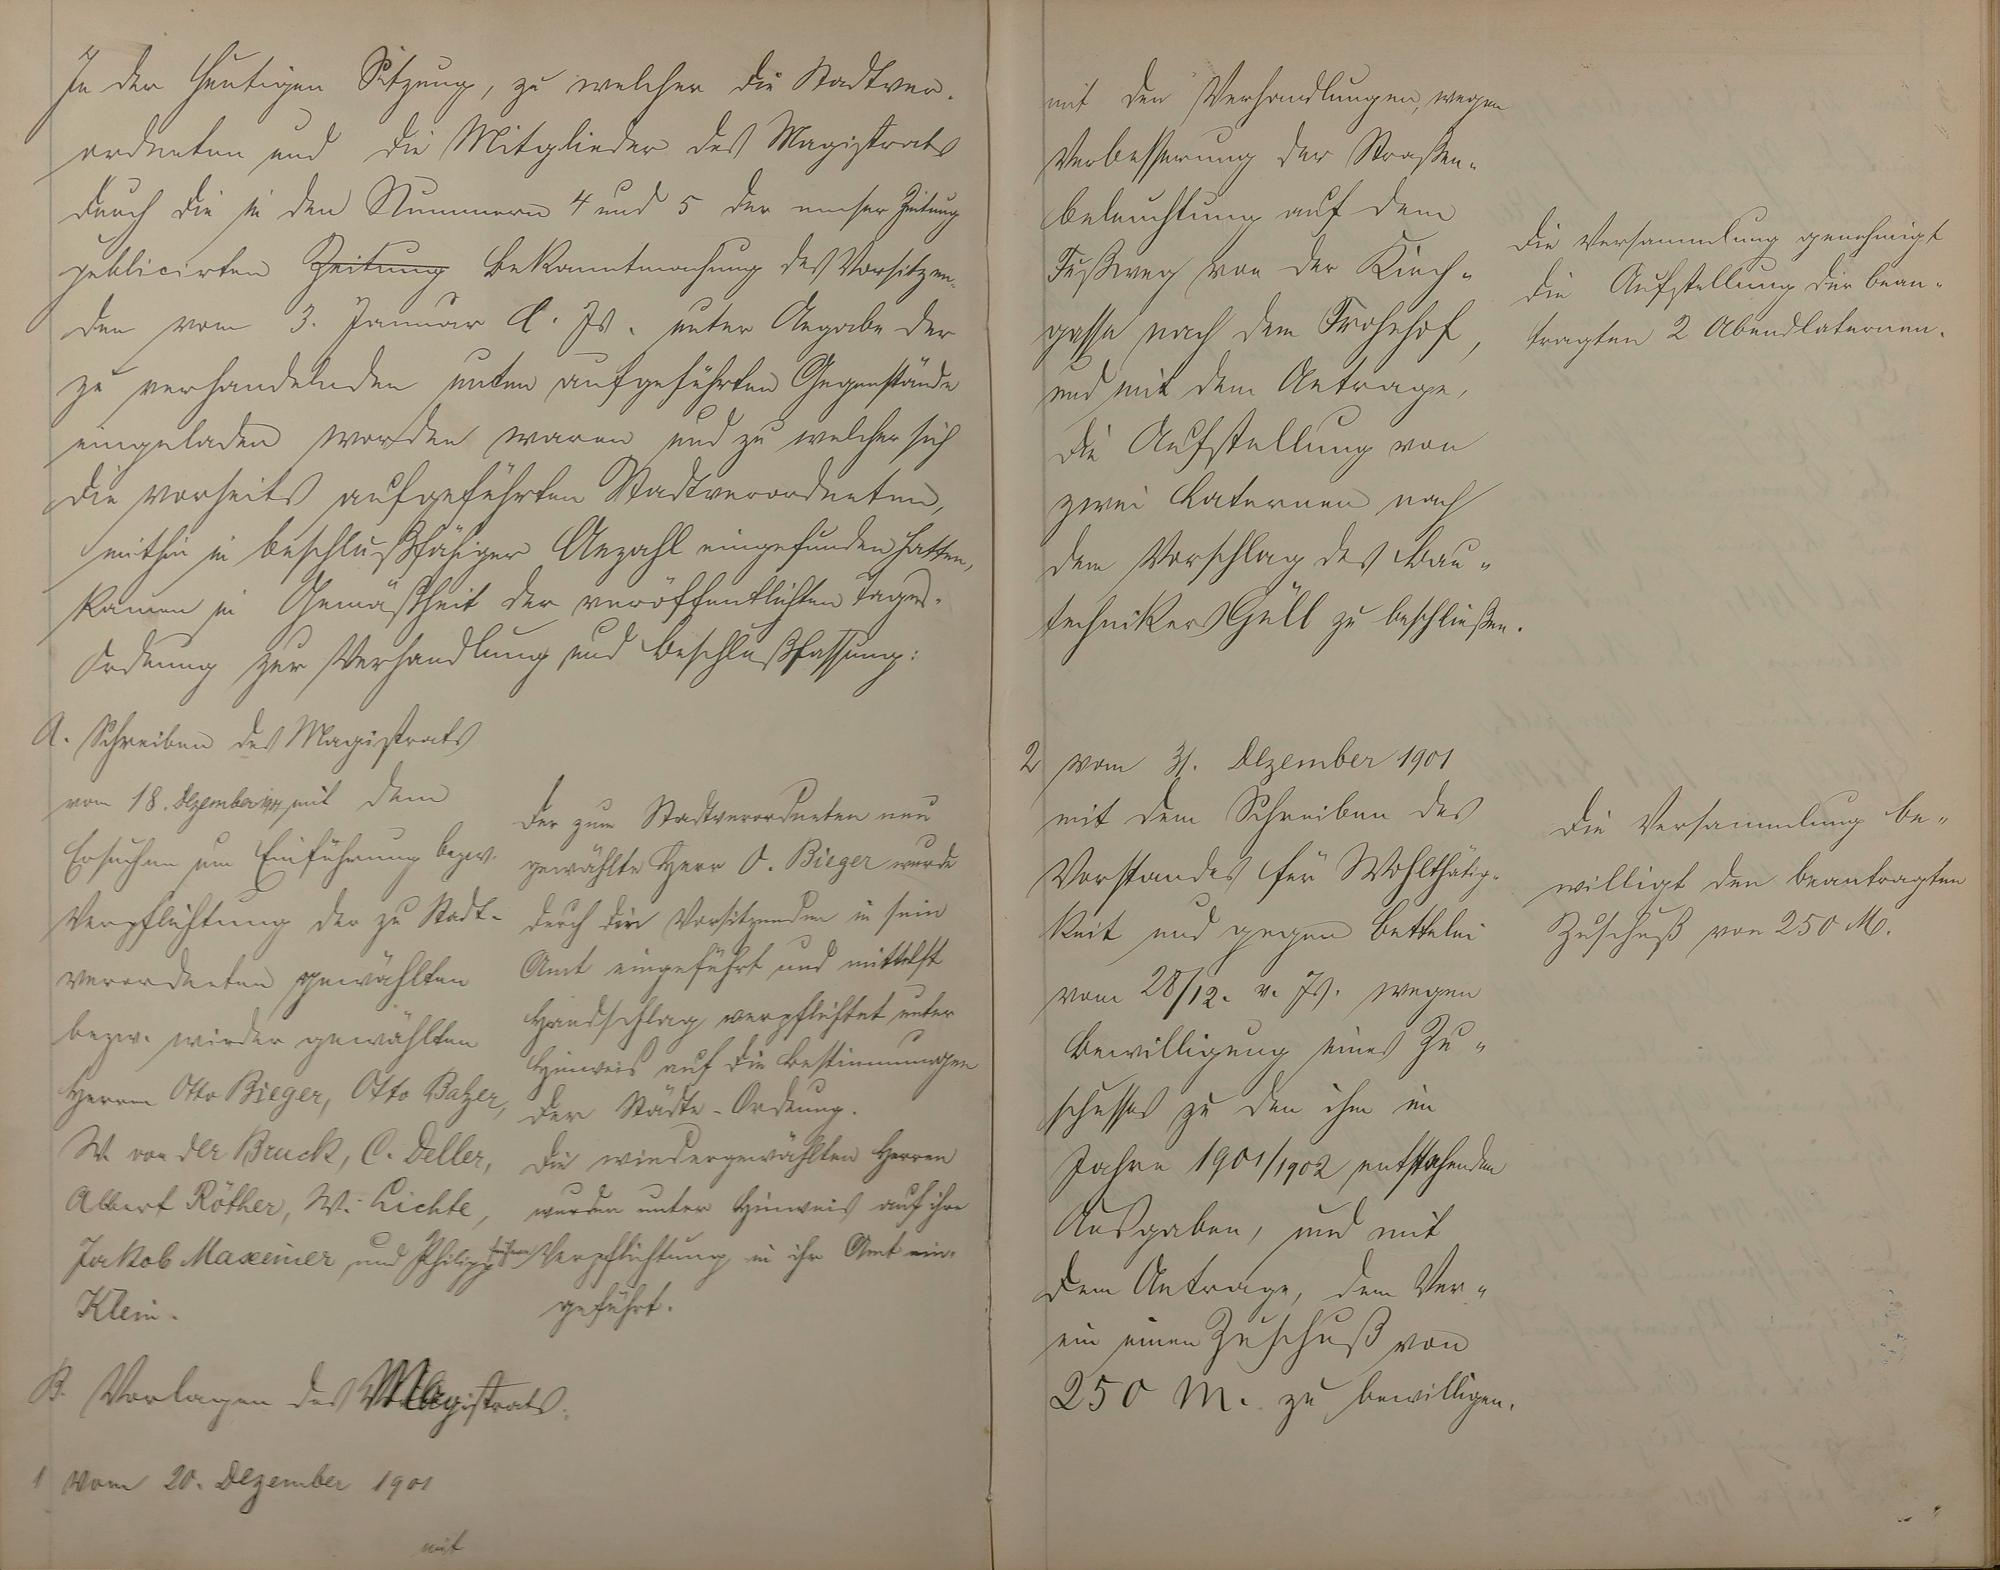 In der heutigen Sitzung, zu welcher die Stadtver-
ordneten und die Mitglieder des Magistrats
durch die in den Nummern 4 und 5 der emser Zeitung
publicirten Zeitung Bekanntmachung des Vorsitzen-
den vom 3. Januar l. Js. unter Angabe der
zu verhandelnden unten aufgeführten Gegenstände
eingeladen worden waren und zu welcher sich
die vorseits aufgeführten Stadtverordneten,
mithin in beschlußfähiger Anzahl eingefunden hatten,
kamen in Gemäßheit der veröffentlichten Tages-
Ordnung zur Verhandlung und Beschlußfassung:
A. Schreiben des Magistrats
vom 18. Dezember 1901, mit dem
Ersuchen um Einführung bezw.
Verpflichtung der zu Stadt-
verordneten gewählten
bezw. wieder gewählten
Herren Otto Bieger, Otto Balzer,
W. von der Bruck, C. Deller,
Albert Röther, W. Lichte,
Jakob Maxeiner und Philipp
Klein.
Der zum Stadtverordneten neu
gewählte Herr O. Bieger wurde
durch den Vorsitzenden in sein
Amt eingeführt und mittelst
Handschlag verpflichtet unter
Hinweis auf die Bestimmungen
der Städte-Ordnung.
Die wiedergewählten Herren
wurden unter Hinweis auf ihre
frühere Verpflichtung in ihr Amt ein-
geführt.
B. Vorlagen des Magistrats.
1 vom 20. Dezember 1901
mit
mit den Verhandlungen, wegen
Verbesserung der Straßen-
beleuchtung auf dem
Fußweg von der Kirch-
gasse nach dem Frohnhof,
und mit dem Antrage,
die Aufstellung von
zwei Laternen nach
dem Vorschlag des Bau-
technikers Güll zu beschließen.
Die Versammlung genehmigt
die Aufstellung der bean-
tragten 2 Abendlaternen.
2 vom 31. Dezember 1901
mit dem Schreiben des
Vorstandes für Wohlthätig-
keit und gegen Bettelei
vom 28/12. v. Js. wegen
Bewilligung eines Zu-
schusses zu den ihm im
Jahre 1901/1902 entstehenden
Ausgaben, und mit
dem Antrage, dem Ver-
ein einen Zuschuß von
250 M. zu bewilligen.
Die Versammlung be-
willigt den beantragten
Zuschuß von 250 M.